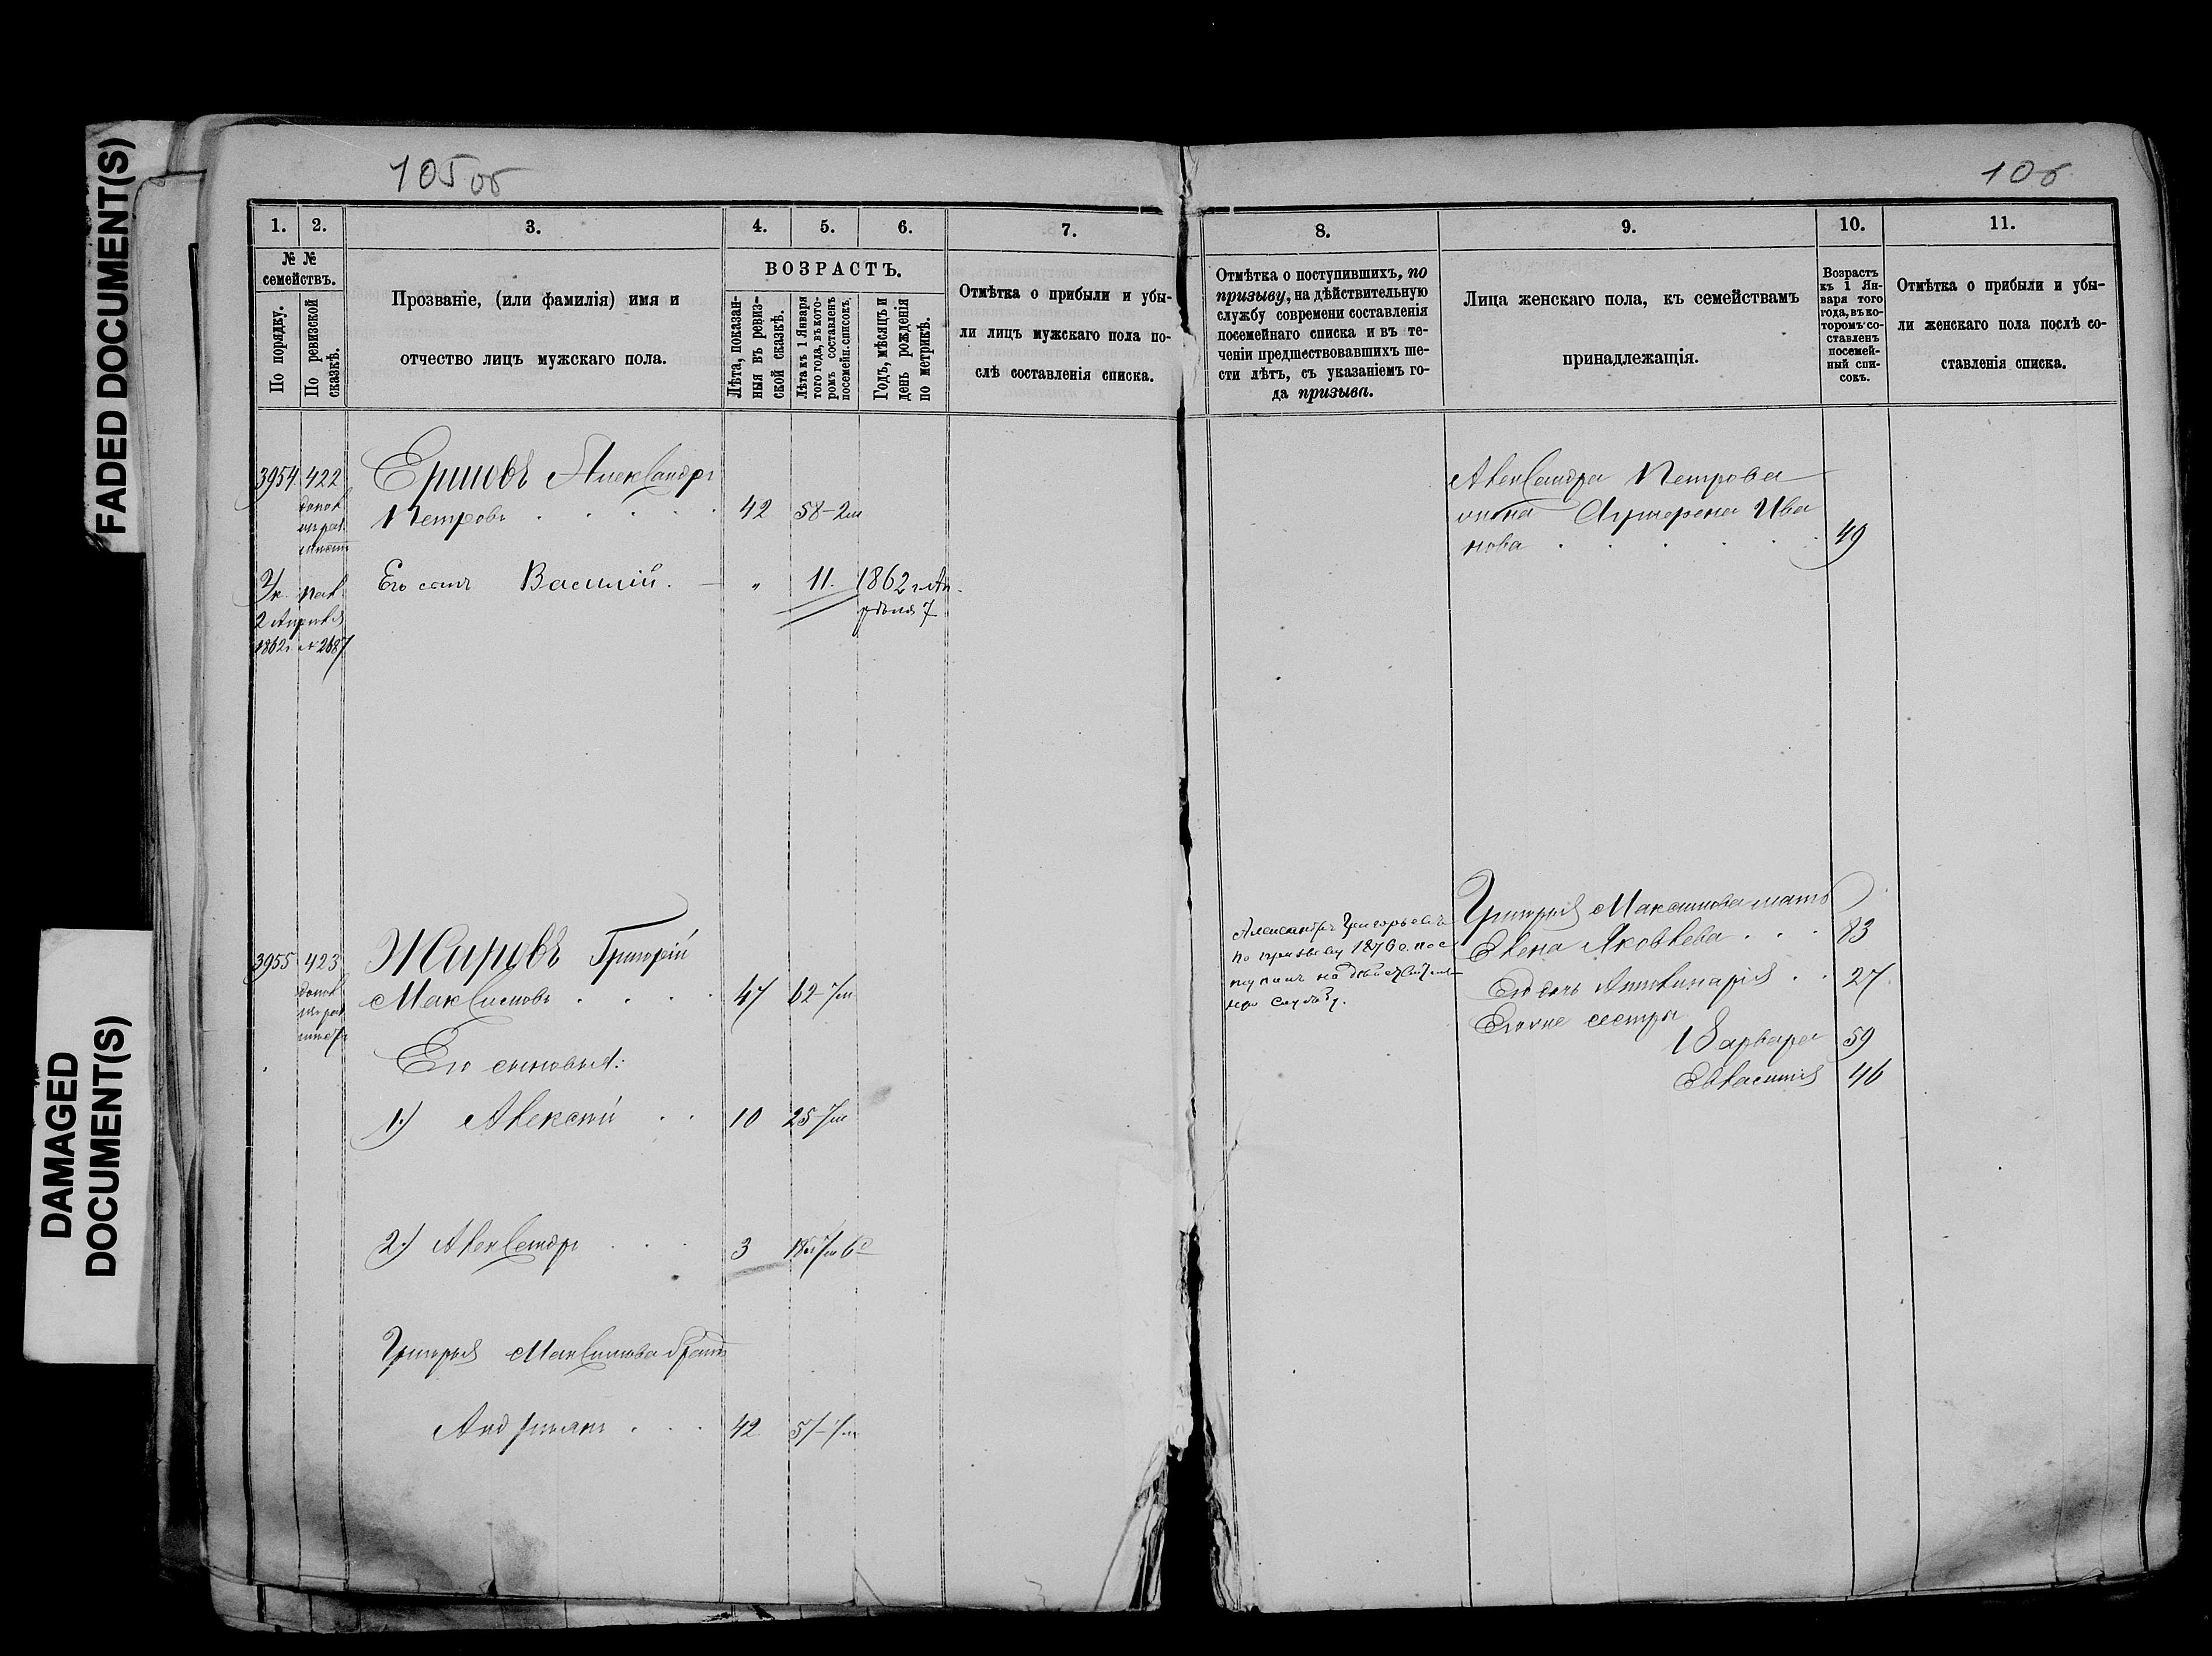 FADED DOCUMENT(S)
DAMAGED
DOCUMENT(S)
105 об
1.
2.
3.
4.
5.
6.
7.
№ №
семействъ.
По порядку.
По ревизской
сказкѣ.
Прозваніе, (или фамилія) имя и
отчество лицъ мужскаго пола.
ВОЗРАСТЪ.
Лѣта, показан-
ныя въ ревиз-
ской сказкѣ.
Лѣта къ 1 Января
того года, въ кото-
ромъ составленъ
посемейн. списокъ.
Годъ, мѣсяцъ и
день рожденія
по метрикѣ.
Отмѣтка о прибыли и убы-
ли лицъ мужскаго пола по-
слѣ составленія списка.
3954 422 Ершовъ Александръ
Петровъ . . . . . 42 58-2м
Его сынъ Василій. — „ 11. 1862 г. Ап-
рѣля 7
2 Апрѣля
1862 г. № 2687
3955 423 Жаровъ Григорій
Максимовъ . . . . 47 62-7м
Его сыновья:
1.) Алексѣй . . 10 25-7м
2.) Александръ . . . 3 18-7м 6д
Григорья Максимова братъ
Андріянъ . . . 42 57-7м
106
8.
9.
10.
11.
Отмѣтка о поступившихъ, по
призыву, на дѣйствительную
службу современи составленія
посемейнаго списка и въ те-
ченіи предшествовавшихъ ше-
сти лѣтъ, съ указаніемъ го-
да призыва.
Лица женскаго пола, къ семействамъ
принадлежащія.
Возрастъ
къ 1 Ян-
варя того
года, въ ко-
торомъ со-
ставленъ
посемей-
ный спи-
сокъ.
Отмѣтка о прибыли и убы-
ли женскаго пола послѣ со-
ставленія списка.
Александра Петрова
жена Ива
нова . . . . . . 49
Александръ Григорьевъ
по призыву 1876 г. пос
тупилъ на дѣйствитель
ную службу.
Григорья Максимова мать
Елена Яковлева . . . 83
Его дочь Апполинарія . . 27
Его же сестры
Варвара 59
Евласитія 46